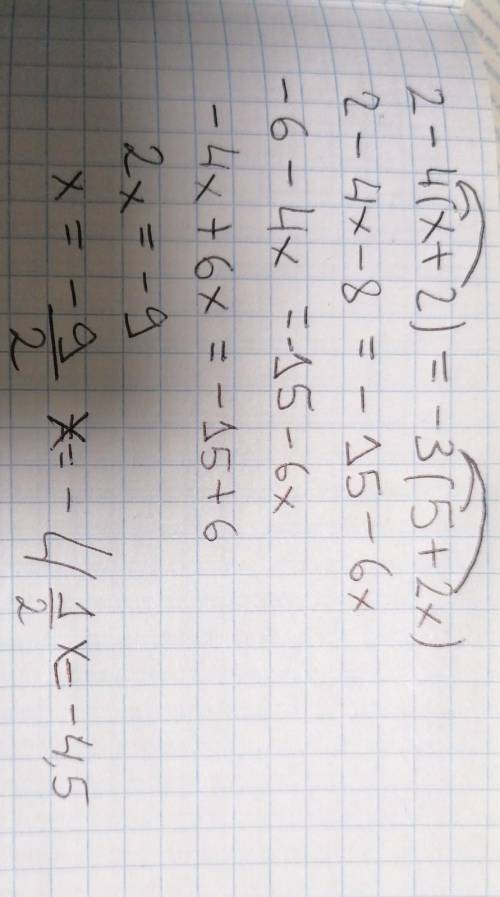 2 - 4(x + 2) = -3(5 + 2x)
2 - 4x - 8 = - 15 - 6x
- 6 - 4x = -15 - 6x
- 4x + 6x = - 15 + 6
2x = - 9
x = - 9/2 x = - 4 1/2 x = - 4,5